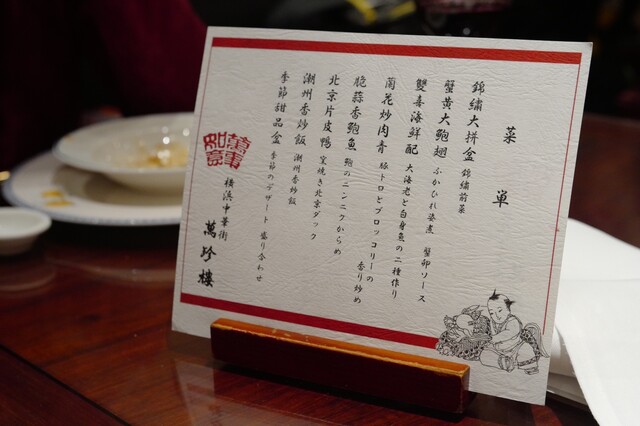 菜 単
錦繡大拼盆 錦繍前菜
蟹黄大鮑翅 ふかひれ姿煮 蟹卵ソース
雙喜海鮮配 大海老と白身魚の二種作り
蘭花炒肉青 豚トロとブロッコリーの香り炒め
脆蒜香鮑魚 鮑のニンニクからめ
北京片皮鴨 窯焼き北京ダック
潮州香炒飯 潮州香炒飯
季節甜品盒 季節のデザート 盛り合わせ
萬事如意
横浜中華街
萬珍樓